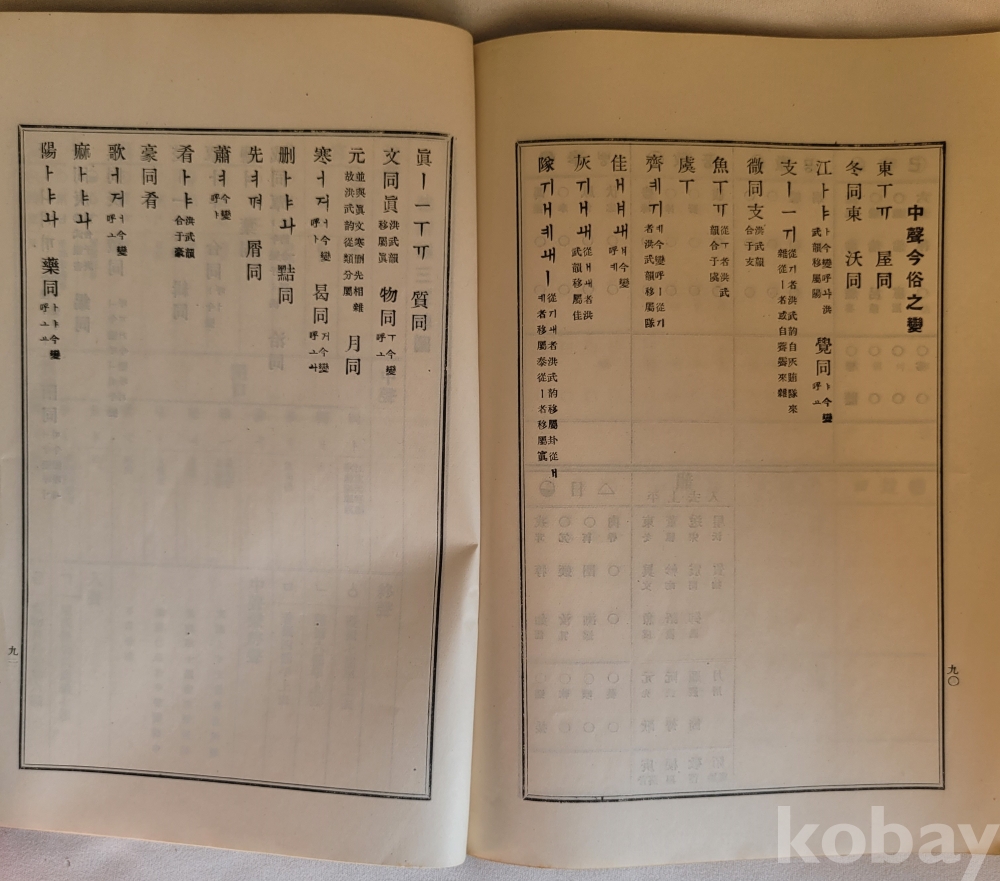 中聲今俗之變
東ㅜㅠ 屋同
冬同東 沃同
江ㅏㅑ ㅏ今變呼ㅘ洪武韻移屬陽 覺同 ㅏ今變呼ㅗ
支ㅣㅡㅟ 從ㅟ者洪武韵自灰賄隊來雜從ㅣ者或自齊霽來雜
微同支 洪武韻合于支
魚ㅜㅠ 從ㅜ者洪武韻合于虞
虞ㅜ
齊ㅖㅟ ㅖ今變呼ㅣ從ㅟ者洪武韻移屬隊
佳ㅐㅒㅙ ㅐ今變呼ㅖ
灰ㅟㅐㅙ 從ㅐㅙ者洪武韻移屬佳
隊ㅟㅐㅖㅙㅣ 從ㅟ者洪武韵移屬卦從ㅐㅖ者移屬泰從ㅣ者移屬寘
九〇
眞ㅣㅡㅜㅠ 三 質同
文同眞 洪武韻移屬眞 物同 ㅜ今變呼ㅗ
元 並與眞文寒刪先相雜故洪武韵從類分屬 月同
寒ㅓㅝ ㅓ今變呼ㅏ 曷同 ㅝ今變呼ㅗㅘ
刪ㅏㅑㅘ 黠同
先ㅕㆊ 屑同
蕭ㅕ 今變呼ㅑ
肴ㅏㅑ 洪武韻合于豪
豪同肴
歌ㅓㅝ ㅓ今變呼ㅗ
麻ㅏㅑㅘ
陽ㅏㅑㅘ 藥同 ㅏㅑ今變呼ㅗㅛ
九
kobay